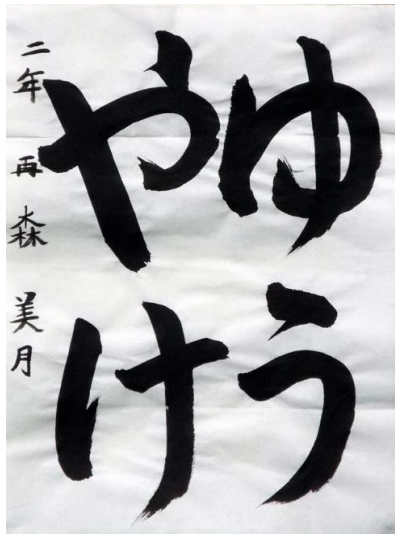 ゆう
やけ
二年 再森 美月